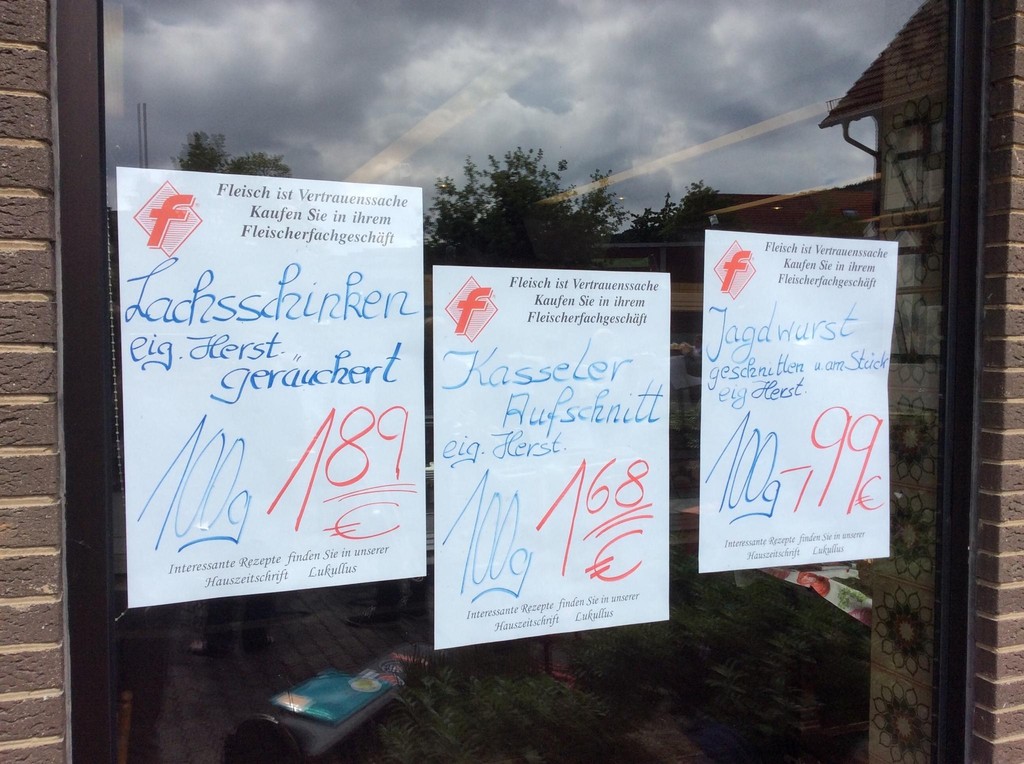 f
Fleisch ist Vertrauenssache
Kaufen Sie in ihrem
Fleischerfachgeschäft
Lachsschinken
eig. Herst.
geräuchert
100g 189
€
Interessante Rezepte finden Sie in unserer
Hauszeitschrift Lukullus
f
Fleisch ist Vertrauenssache
Kaufen Sie in ihrem
Fleischerfachgeschäft
Kasseler
Aufschnitt
eig. Herst.
100g 168
€
Interessante Rezepte finden Sie in unserer
Hauszeitschrift Lukullus
f
Fleisch ist Vertrauenssache
Kaufen Sie in ihrem
Fleischerfachgeschäft
Jagdwurst
geschnitten u. am Stück
eig Herst.
100g -,99€
Interessante Rezepte finden Sie in unserer
Hauszeitschrift Lukullus